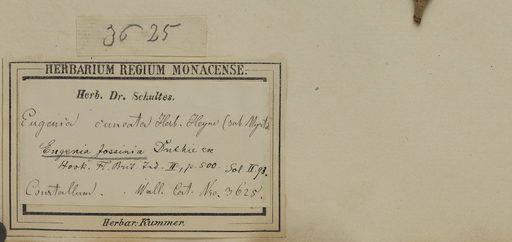 3625
HERBARIUM REGIUM MONACENSE.
Herb. Dr. Schultes.
Eugenia cuneata Herb. Heyne (sub Myrto
Eugenia fossinia Duthie ex
Hook. Fl. Brit. Ind. II, p. 500. Sol. II 93.
Courtallum. . Wall. Cat. Nro. 3625.
Herbar. Kummer.